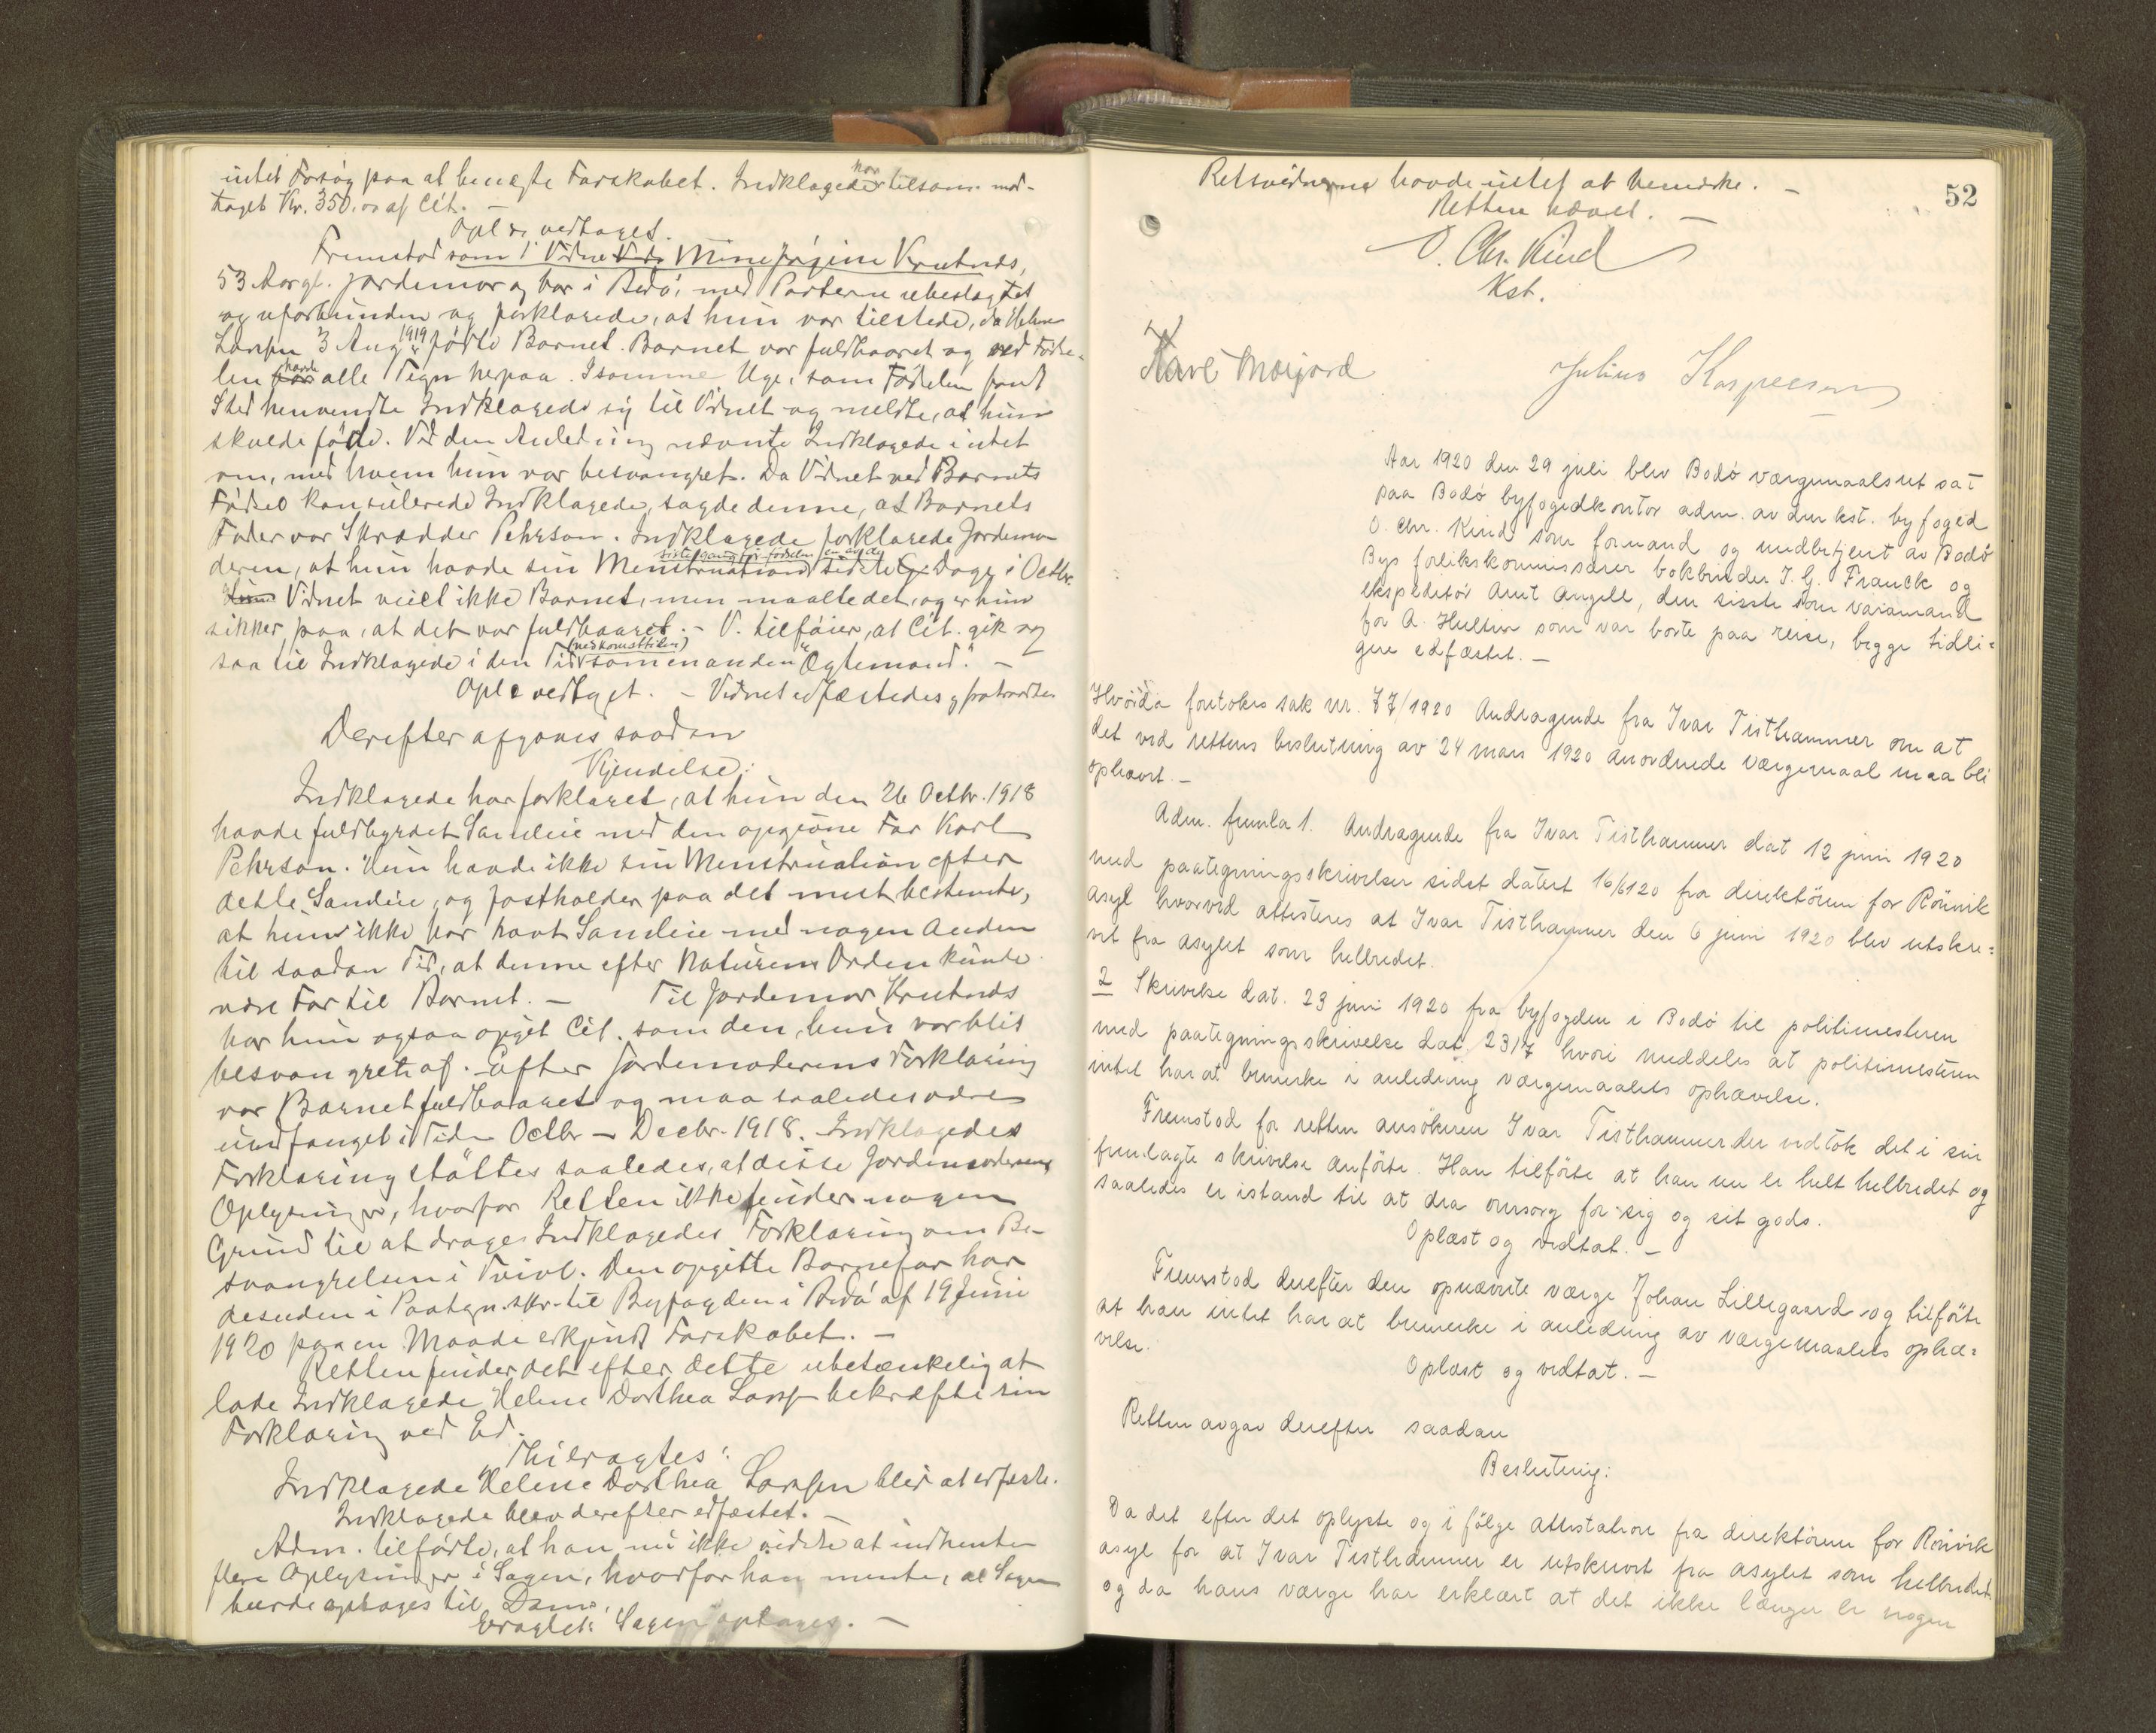 intet Forsøg paa at benegte Farskabet. Indklagede har tilsam. mod-
taget Kr. 350,00 af Cit. –
Opl. & vedtaget.
Fremstod som 1 Vidne Mine Jørgine Krutnes,
53 Aar gl. Jordemor og bor i Bodø, med Parterne ubeslægtet
og uforbunden og forklarede, at hun var tilstede, da Helene
Larsen 3 Aug 1919 fødte Barnet. Barnet var fuldbaaret og ved Føds-
len havde alle Tegn herpaa. I samme Uge, som Fødselen fandt
Sted henvendte Indklagede sig til Vidnet og meldte, at hun
skulde føde. Ved den Anledning nævnte Indklagede intet
om, med hvem hun var besvangret. Da Vidnet ved Barnets
Fødsel konsulerede Indklagede, sagde denne, at Barnets
Fader var Skrædder Pehrson. Indklagede forklarede Jordemo-
deren, at hun havde sin Menstruation sidste gang før fødselen en af de sidste Dage i Octbr.
Vidnet veiet ikke Barnet, men maalte det, og er hun
sikker paa, at det var fuldbaaret. – V. tilføier, at Cit. gik og
saa til Indklagede i den Tid (nedkomsttiden) som en anden "Ægtemand". –
Opl & vedtaget. – Vidnet edfæstedes og fratraadte.
Derefter afgaves saadan
Kjendelse:
Indklagede har forklaret, at hun den 26 Octbr. 1918
havde fuldbyrdet Samleie med den opgivne Far Karl
Pehrson. Hun havde ikke sin Menstruation efter
dette Samleie, og fastholder paa det mest bestemte,
at hun ikke har havt Samleie med nogen Anden
til saadan Tid, at denne efter Naturens Orden kunde
være Far til Barnet. – Til Jordemor Krutnes
har hun ogsaa opgit Cit. som den, hun var blit
besvangret af. – Efter Jordemoderens Forklaring
var Barnet fuldbaaret og maa saaledes være
undfanget i Tiden Octbr – Decbr. 1918. Indklagedes
Forklaring støttes saaledes, at disse Jordemoderens
Oplysninger, hvorfor Retten ikke finder nogen
Grund til at drage Indklagedes Forklaring om Be-
svangrelsen i Tvivl. Den opgitte Barnefar har
desuden i Paategn. skr. til Byfogden i Bodø af 19 Juni
1920 paa en Maade erkjendt Farskabet. –
Retten finder det efter dette ubetænkelig at
lade Indklagede Helene Dorthea Larsen bekræfte sin
Forklaring ved Ed.
Thi eragtes:
Indklagede Helene Dorthea Larsen blir at edfæste.
Indklagede blev derefter edfæstet. –
Adm. tilførte, at han nu ikke vidste at indhente
flere Oplysninger i Sagen, hvorfor han mente, at Sagen
burde optages til Doms.
Eragtet: Sagen optages. –
52
Retsvidnerne havde intet at bemerke. –
Retten hævet. –
O. Chr. Kind
Kst.
Karl Morgard
Julius Kaspersen
Aar 1920 den 29 juli blev Bodø værgemaalsret sat
paa Bodø byfogedkontor adm. av den kst. byfoged
O. Chr. Kind som formand og medbetjent av Bodø
Bys forlikskommissærer bokbinder J. G. Franck og
ekspeditør Amt Angell, den sisste som varamand
for A. Hultin som var borte paa reise, begge tidli=
gere edfæstet. –
Hvorda foretokes sak nr. 77/1920 Andragende fra Ivar Tisthammer om at
det ved rettens beslutning av 24 mars 1920 anordnede værgemaal maa bli
ophævet. –
Adm. fremla 1. Andragende fra Ivar Tisthammer dat 12 juni 1920
med paategningsskrivelser sidst datert 16/6 120 fra direktøren for Rønvik
asyl hvorved attesteres at Ivar Tisthammer den 6 juni 1920 blev utskre=
vet fra asylet som helbredet.
2 Skrivelse dat. 23 juni 1920 fra byfogden i Bodø til politimesteren
med paategningsskrivelse dat 23/7 hvori meddeles at politimesteren
intet har at bemerke i anledning værgemaalets ophævelse.
Fremstod for retten ansøkeren Ivar Tisthammer der vedtok det i sin
fremlagte skrivelse anførte. Han tilførte at han nu er helt helbredet og
saaledes er istand til at dra omsorg for sig og sit gods.
Oplæst og vedtat. –
Fremstod derefter den opnævnte værge Johan Lillegaard og tilførte
at han intet har at bemerke i anledning av værgemaalets ophæ=
velse.
Oplæst og vedtat. –
Retten avgav derefter saadan
Beslutning:
Da det efter det oplyste og i følge attestation fra direktøren for Rønvik
asyl for at Ivar Tisthammer er utskrevet fra asylet som helbredet
og da hans værge har erklært at det ikke længer er nogen